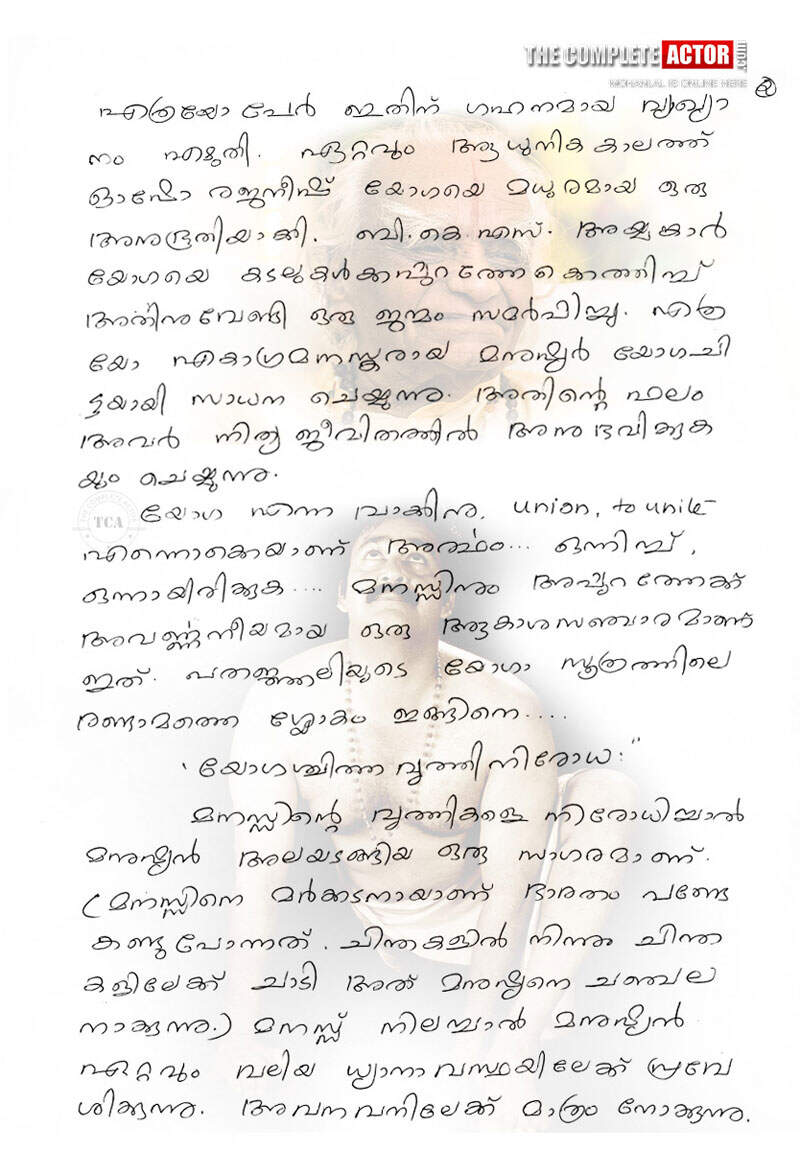 THE COMPLETE ACTOR .COM
MOHANLAL IS ONLINE HERE
2
എത്രയോ പേർ ഇതിന് ഗഹനമായ വ്യാഖ്യാ
നം എഴുതി. ഏറ്റവും ആധുനിക കാലത്ത്
ഓഷോ രജനീഷ് യോഗയെ മധുരമായ ഒരു
അനുഭൂതിയാക്കി. ബി.കെ.എസ്. അയ്യങ്കാർ
യോഗയെ കടലുകൾക്കപ്പുറത്തേകൊത്തിച്ച്
അതിനുവേണ്ടി ഒരു ജന്മം സമർപ്പിച്ചു. എത്ര
യോ ഏകാഗ്രമനസ്കരായ മനുഷ്യർ യോഗചി
ട്ടയായി സാധന ചെയ്യുന്നു. അതിന്റെ ഫലം
അവർ നിത്യജീവിതത്തിൽ അനുഭവിക്കുക
യും ചെയ്യുന്നു.
TCA
യോഗ എന്ന വാക്കിനു, union, to unite
എന്നൊക്കെയാണ് അർത്ഥം... ഒന്നിച്ച്,
ഒന്നായിരിക്കുക.... മനസ്സിനും അപ്പുറത്തേക്ക്
അവർണ്ണനീയമായ ഒരു ആകാശസഞ്ചാരമാണ്
ഇത്. പതഞ്ജലിയുടെ യോഗാ സൂത്രത്തിലെ
രണ്ടാമത്തെ ശ്ലോകം ഇങ്ങിനെ....
'യോഗശ്ചിത്തവൃത്തിനിരോധ:"
മനസ്സിന്റെ വൃത്തികളെ നിരോധിച്ചാൽ
മനുഷ്യൻ അലയടങ്ങിയ ഒരു സാഗരമാണ്.
(മനസ്സിനെ മർക്കടനായാണ് ഭാരതം പണ്ടേ
കണ്ടുപോന്നത്. ചിന്തകളിൽ നിന്നും ചിന്ത
കളിലേക്ക് ചാടി അത് മനുഷ്യനെ ചഞ്ചല
നാക്കുന്നു.) മനസ്സ് നിലച്ചാൽ മനുഷ്യൻ
ഏറ്റവും വലിയ ധ്യാനാവസ്ഥയിലേക്ക് പ്രവേ
ശിക്കുന്നു. അവനവനിലേക്ക് മാത്രം നോക്കുന്നു.